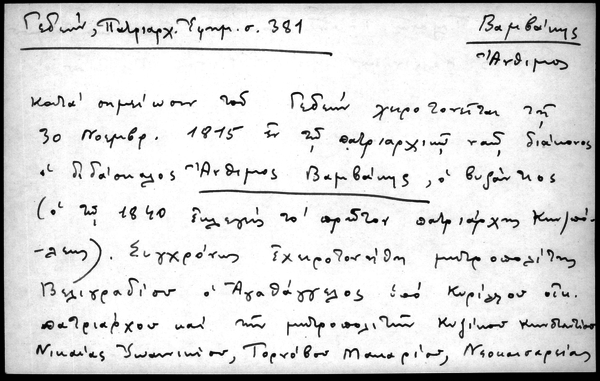 Γεδεών, Πατριαρχ. Ἐφημ. σ. 381
Βαμβάκης
Ἄνθιμος
Κατά σημείωσιν τοῦ Γεδεών χειροτονεῖται τῇ
30 Νοεμβρ. 1815 ἐν τῷ πατριαρχικῷ ναῷ διάκονος
ὁ διδάσκαλος Ἄνθιμος Βαμβάκης, ὁ Βυζάντιος
(ὁ τῷ 1840 ἐκλεγείς τό πρῶτον πατριάρχης Κων/πό-
-λεως). Συγχρόνως ἐχειροτονήθη μητροπολίτης
Βελιγραδίου ὁ Ἀγαθάγγελος ὑπό Κυρίλλου οἰκ.
πατριάρχου καί τῶν μητροπολιτῶν Κυζίκου Κωνσταντίου
Νικαίας Ἰωαννικίου, Τορνόβου Μακαρίου, Νεοκαισαρείας